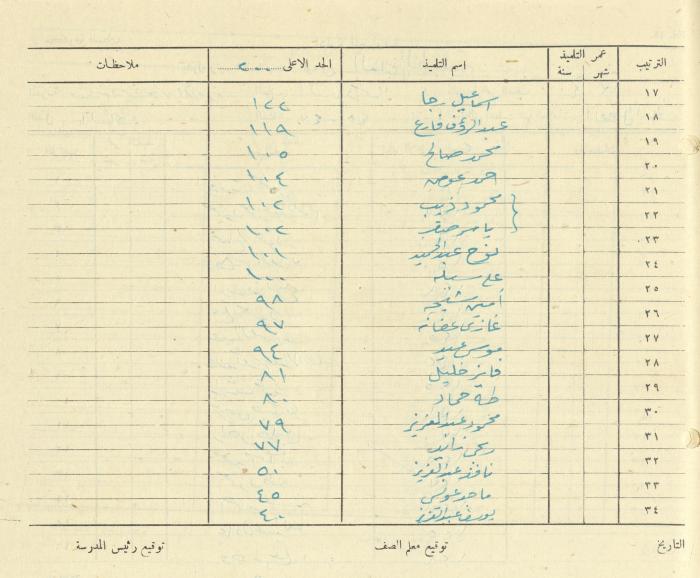 الترتيب عمر التلميذ شهر سنة اسم التلميذ الحد الاعلى ٢٠٠ ملاحظات
١٧ اسماعيل رجا ١٢٢
١٨ عبد الرؤوف فارع ١١٩
١٩ محمد صالح ١٠٥
٢٠ احمد عوض ١٠٤
٢١ محمود ذيب ١٠٢
٢٢ ياسر صقر ١٠٢
٢٣ نوح عبد الحميد ١٠١
٢٤ علي ١٠٠
٢٥ أمين ٩٨
٢٦ غازي ٩٧
٢٧ موسى عبيد ٩٤
٢٨ فايز خليل ٨١
٢٩ طه حماد ٨٠
٣٠ محمود عبد العزيز ٧٩
٣١ يحيى زايد ٧٧
٣٢ نافذ عبد العزيز ٥٠
٣٣ ماجد عوني ٤٥
٣٤ يوسف عبد العزيز ٤٠
التاريخ توقيع معلم الصف توقيع رئيس المدرسة